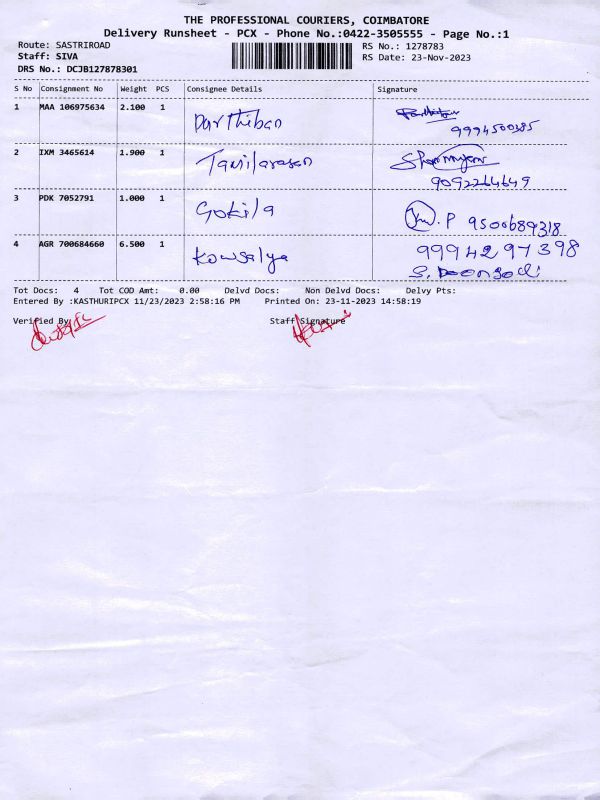 THE PROFESSIONAL COURIERS, COIMBATORE
Delivery Runsheet - PCX - Phone No.:0422-3505555 - Page No.:1
Route: SASTRIROAD RS No.: 1278783
Staff: SIVA RS Date: 23-Nov-2023
DRS No.: DCJB127878301
S No Consignment No Weight PCS Consignee Details Signature
1 MAA 106975634 2.100 1 Parthiban
9994500385
2 IXM 3465614 1.900 1 Tamilarasan
9092264649
3 PDK 7052791 1.000 1 Gokila P 9500689318
4 AGR 700684660 6.500 1 Kowsalya 9994297398
Tot Docs: 4 Tot COD Amt: 0.00 Delvd Docs: Non Delvd Docs: Delvy Pts:
Entered By :KASTHURIPCX 11/23/2023 2:58:16 PM Printed On: 23-11-2023 14:58:19
Verified By Staff Signature